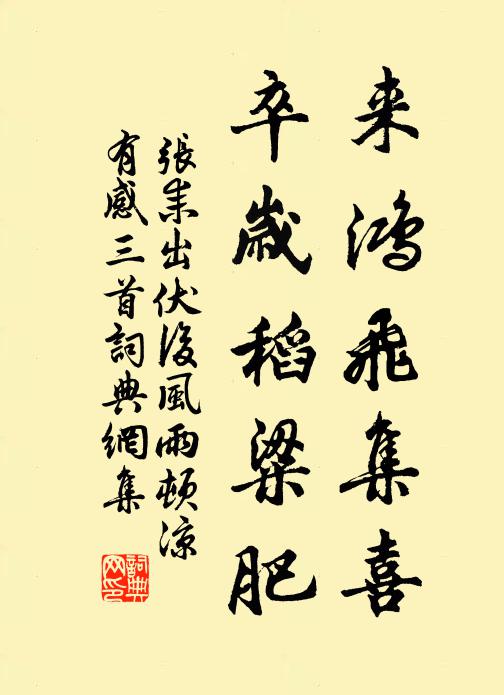 来鸿飛集喜
卒歲稻粱肥
張耒出伏後風雨頓涼
有感三首詞典網集
詞典
网印